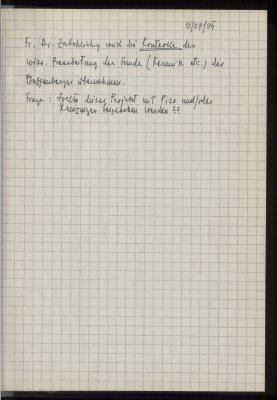 15/07/94
Fr. Dr. Zabehlicky wird die Kontrolle der
wiss. Bearbeitung der Funde (Keramik etc.) des
Pfaffenberges übernehmen.
Frage: Sollte dieses Projekt mit Piso und/oder
besprochen werden??